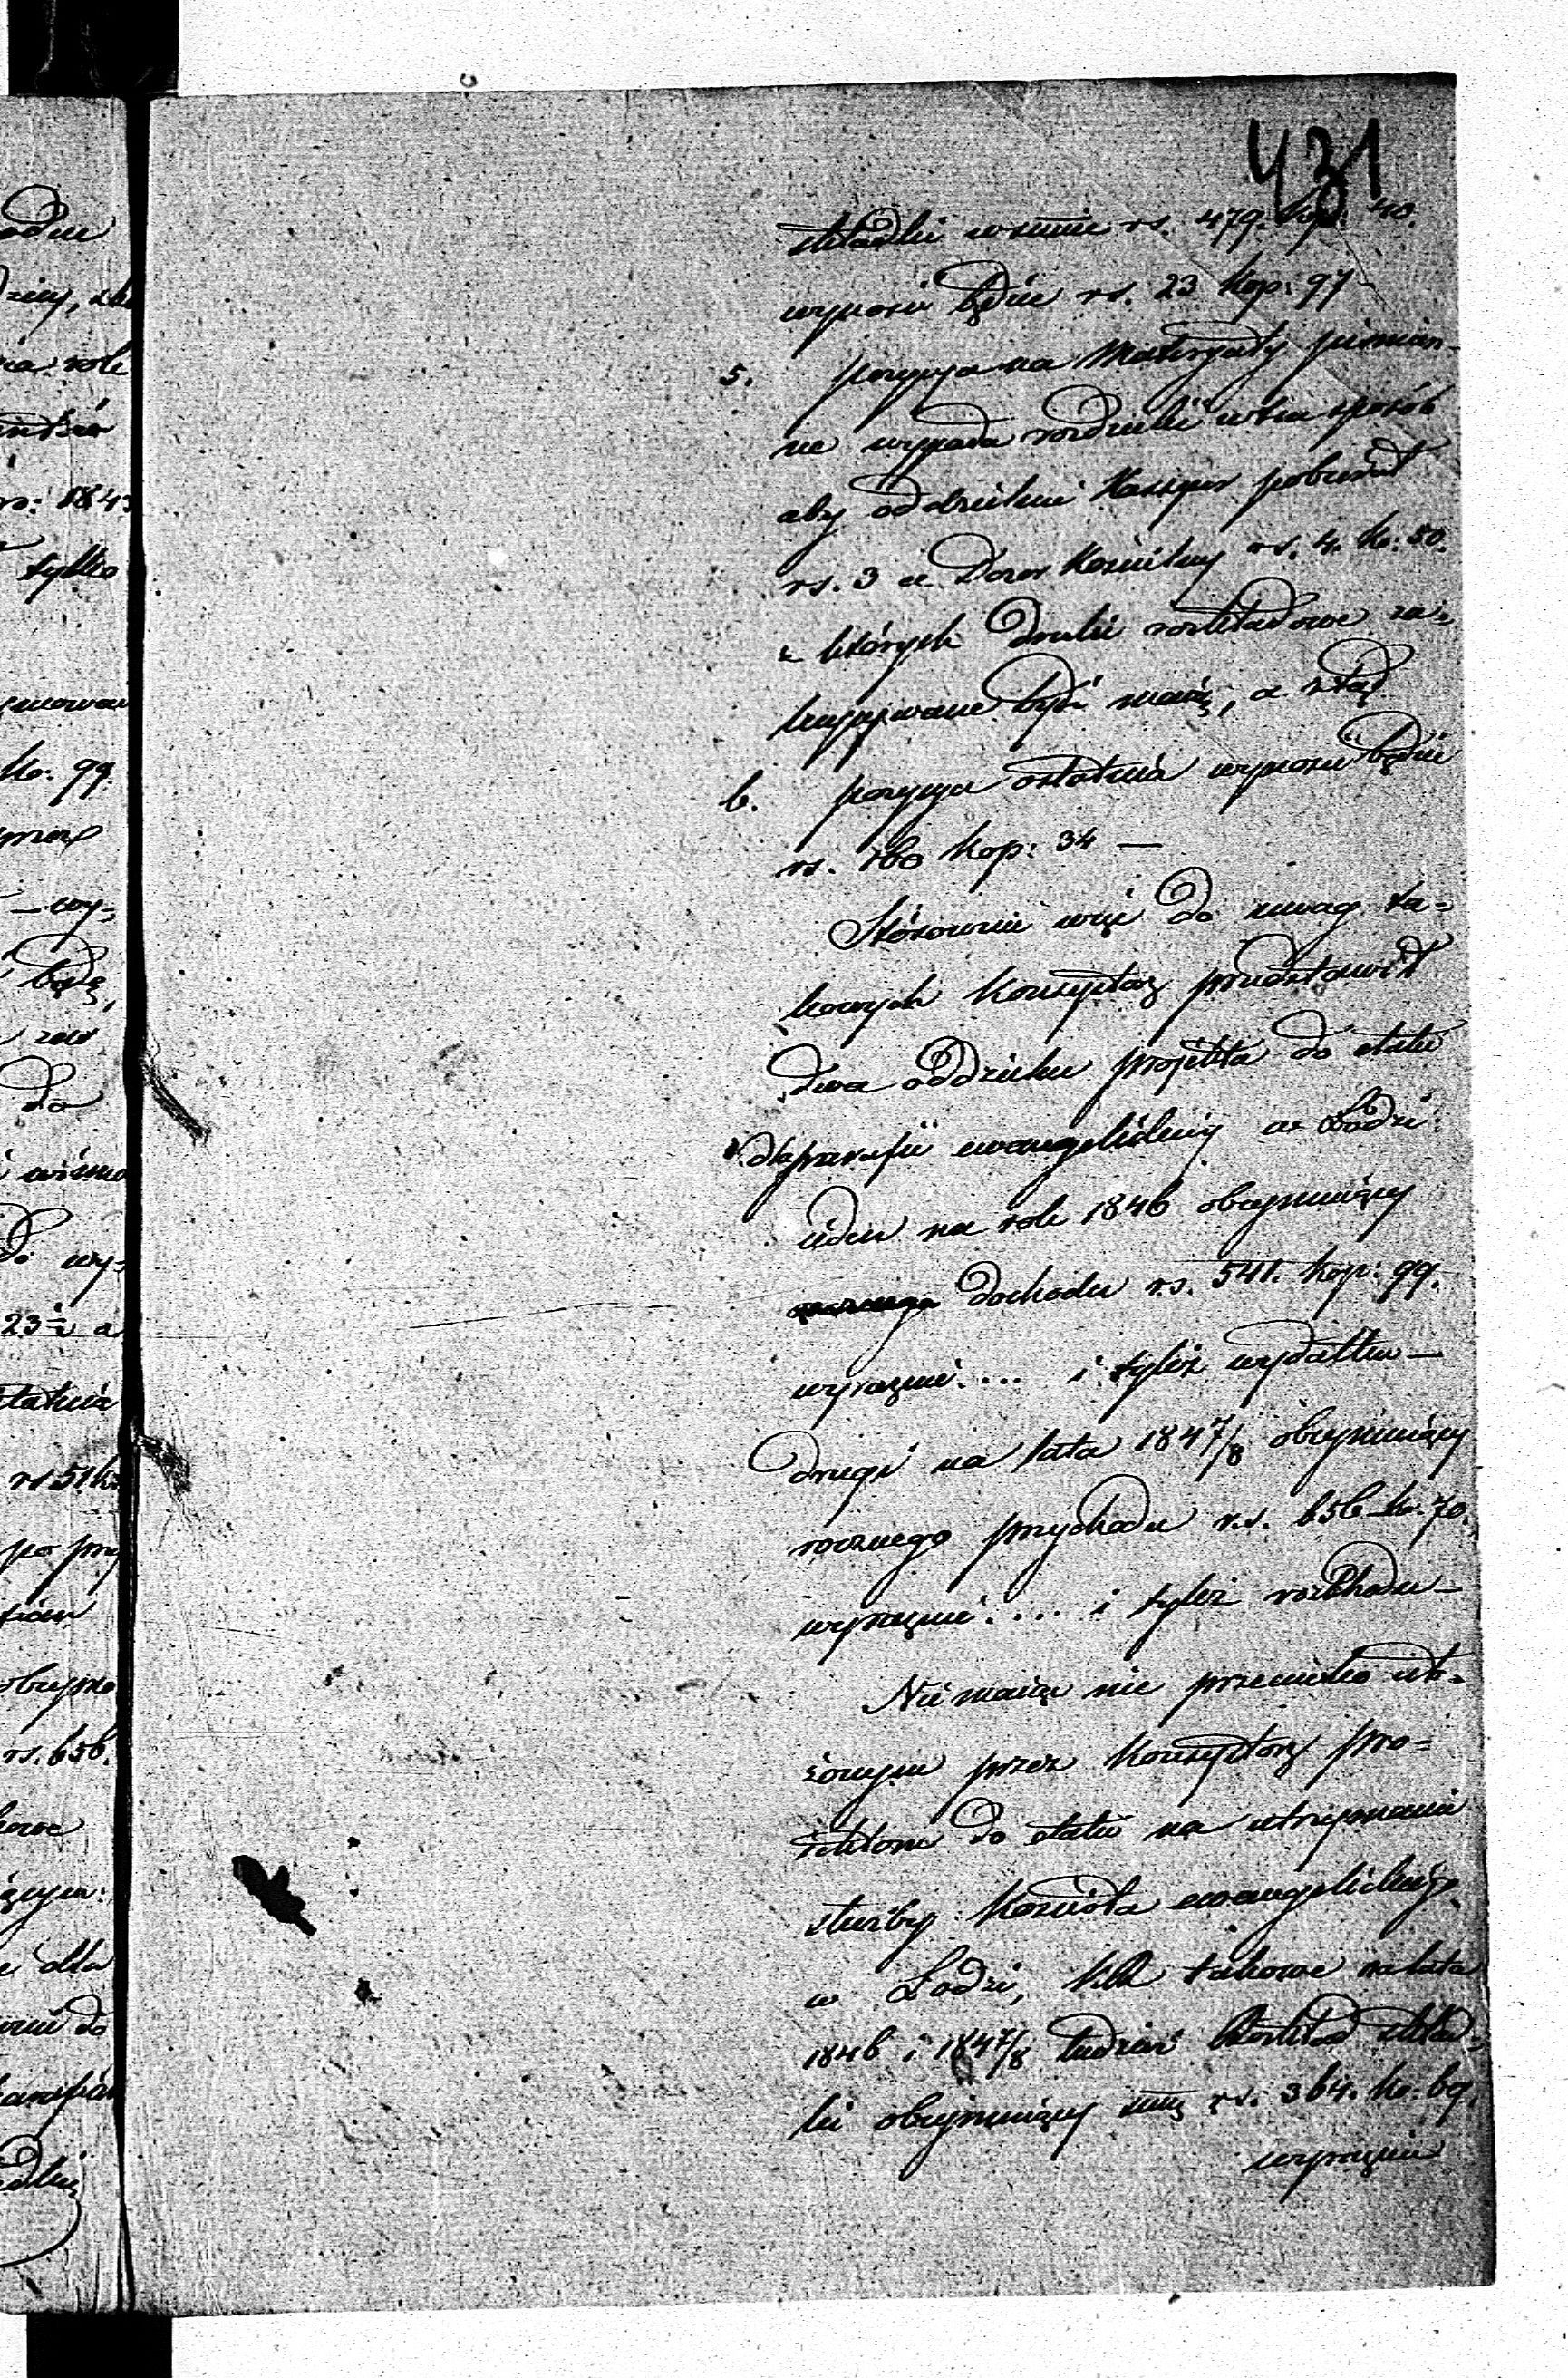 431
składki w summie rs. 479. kop: 40.
wynosić będzie rs. 23 kop: 97
5. pozycya na Materyały piśmien-
ne wypada rozdzielić w ten sposób
aby oddzielnie Kassyer pobierał
rs. 3 a Dozór Kościelny rs. 4. ko: 50.
z których druki rozkładowe za=
kupywane być maią, a ztąd
6. pozycya ostatnia wynosić będzie
rs. 160 kop: 34 —
Stósownie więc do uwag ta=
kowych Konsystorz przedstawił
dwa oddzielne projekta do etatu
dla parafii ewangelickiey w Łodzi:
ieden na rok 1846 obeymuiący
dochodu rs. 541. kop: 99.
wyraźnie .... i tyleż wydatku —
drugi na lata 1847/8 obeymuiący
rocznego przychodu r.s. 656 ko. 70.
wyraźnie .... i tyleż rozchodu —
Nie maiąc nic przeciwko uło=
żonym przez Konsystorz pro=
iektom do etatu na utrzymanie
służby Kościoła ewangelickiego
w Łodzi, takowe na lata
1846 i 1847/8 tudzież Rozkład skład=
ki obeymuiący summę rs: 364. ko. 69.
wyraźnie
odzie
ziey, za
nia rok
ro: 1843
tylko
ko: 99.
— wy=
będą,
do
do wy=
23½ a
rs 51 k:
po przy
obeymo
rs. 656.
dla